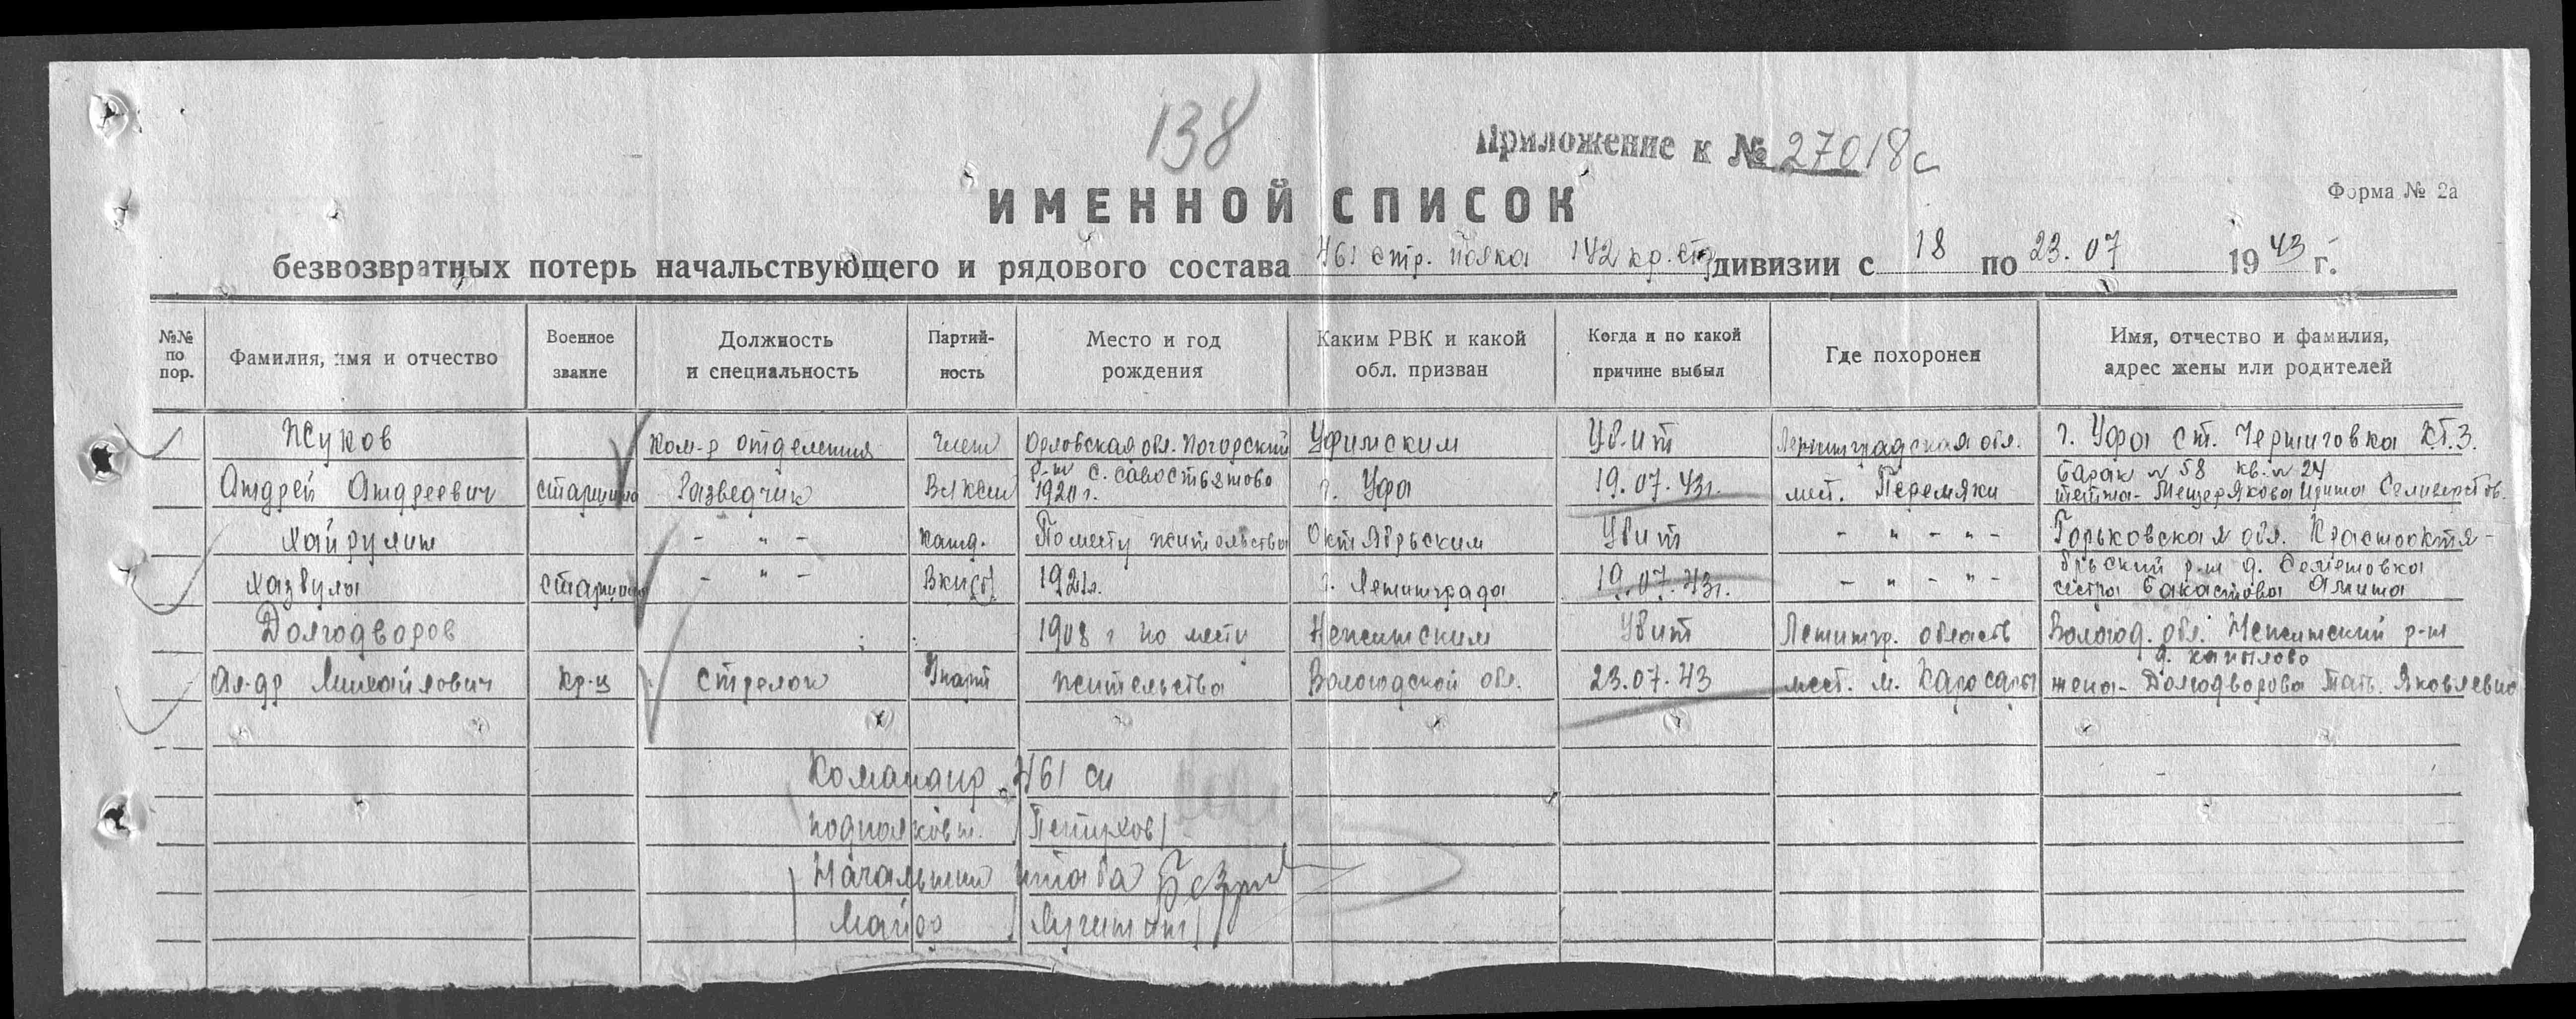 138
Приложение к № 27018с
ИМЕННОЙ СПИСОК
Форма № 2а
безвозвратных потерь начальствующего и рядового состава 461 стр. полка 142 кр. стр дивизии с 18 по 23.07 1943 г.
№№ по пор.
Фамилия, имя и отчество
Военное звание
Должность и специальность
Партий- ность
Место и год рождения
Каким РВК и какой обл. призван
Когда и по какой причине выбыл
Где похоронен
Имя, отчество и фамилия, адрес жены или родителей
Жуков Ком-р отделения член Орловская обл. Погорский Уфимским Убит Ленинградская обл. г. Уфа ст. Черниговка КТ.З.
р-н с. Савостьяново барак № 58 кв. № 24
Андрей Андреевич старшина Разведчик ВЛКСМ 1920 г. г. Уфа 19.07.43г. мест. Перемяки тётка - Мещерякова Ирина Селиверстов.
Хайрулин - " - канд. По месту жительства Октябрьским Убит - " - " - Горьковская обл. Краснооктя-
брьский р-н д. Семёновка
Хазбула старшина - " - ВКП(б) 1921г. г. Ленинграда 19.07.43г. - " - " - сестра Бакастова Амина
Долгодворов 1908 г по месту Нюксенским Убит Ленингр. область Вологод. обл. р-н
д. Копылово
Ал-др Михайлович Кр-ц Стрелок жительства Вологодской обл. 23.07.43 мест. м. Каросары жена - Долгодворова Тать. Яковлевна
Командир 461 сп
подполковн. /Петухов/
Начальник штаба
Майор